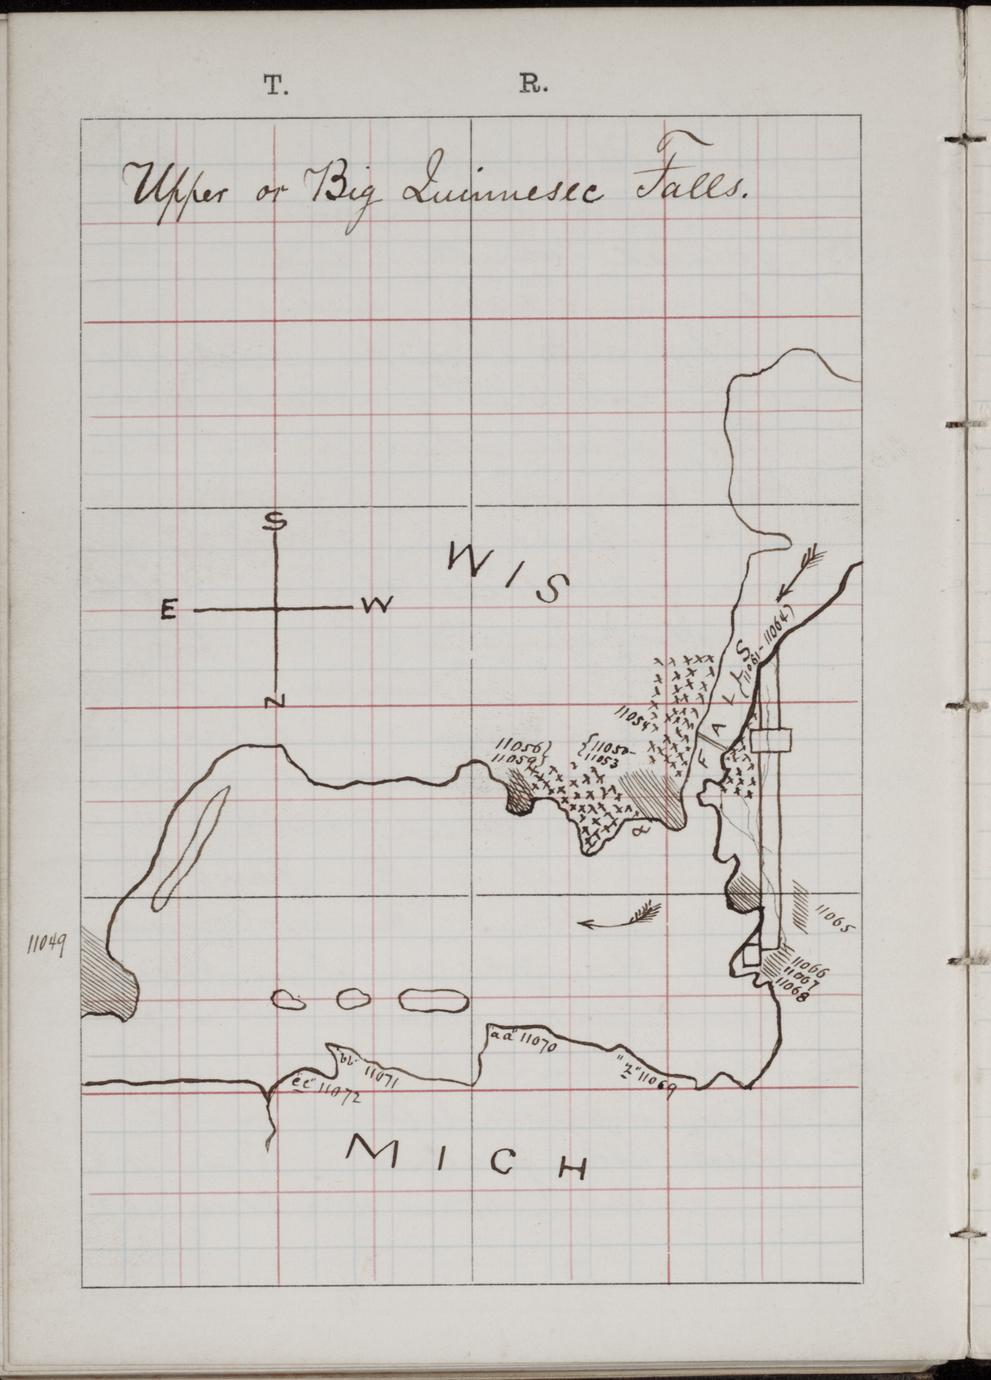 T. R.
Upper or Big Quinnesec Falls.
S
E W
N
WIS
FALLS
(11061-11064)
11054
11056}
11059}
{11050-
11053
a
11065
11066
11067
11068
11049
"aa" 11070
"bb" 11071
"cc" 11072
"z" 11069
MICH